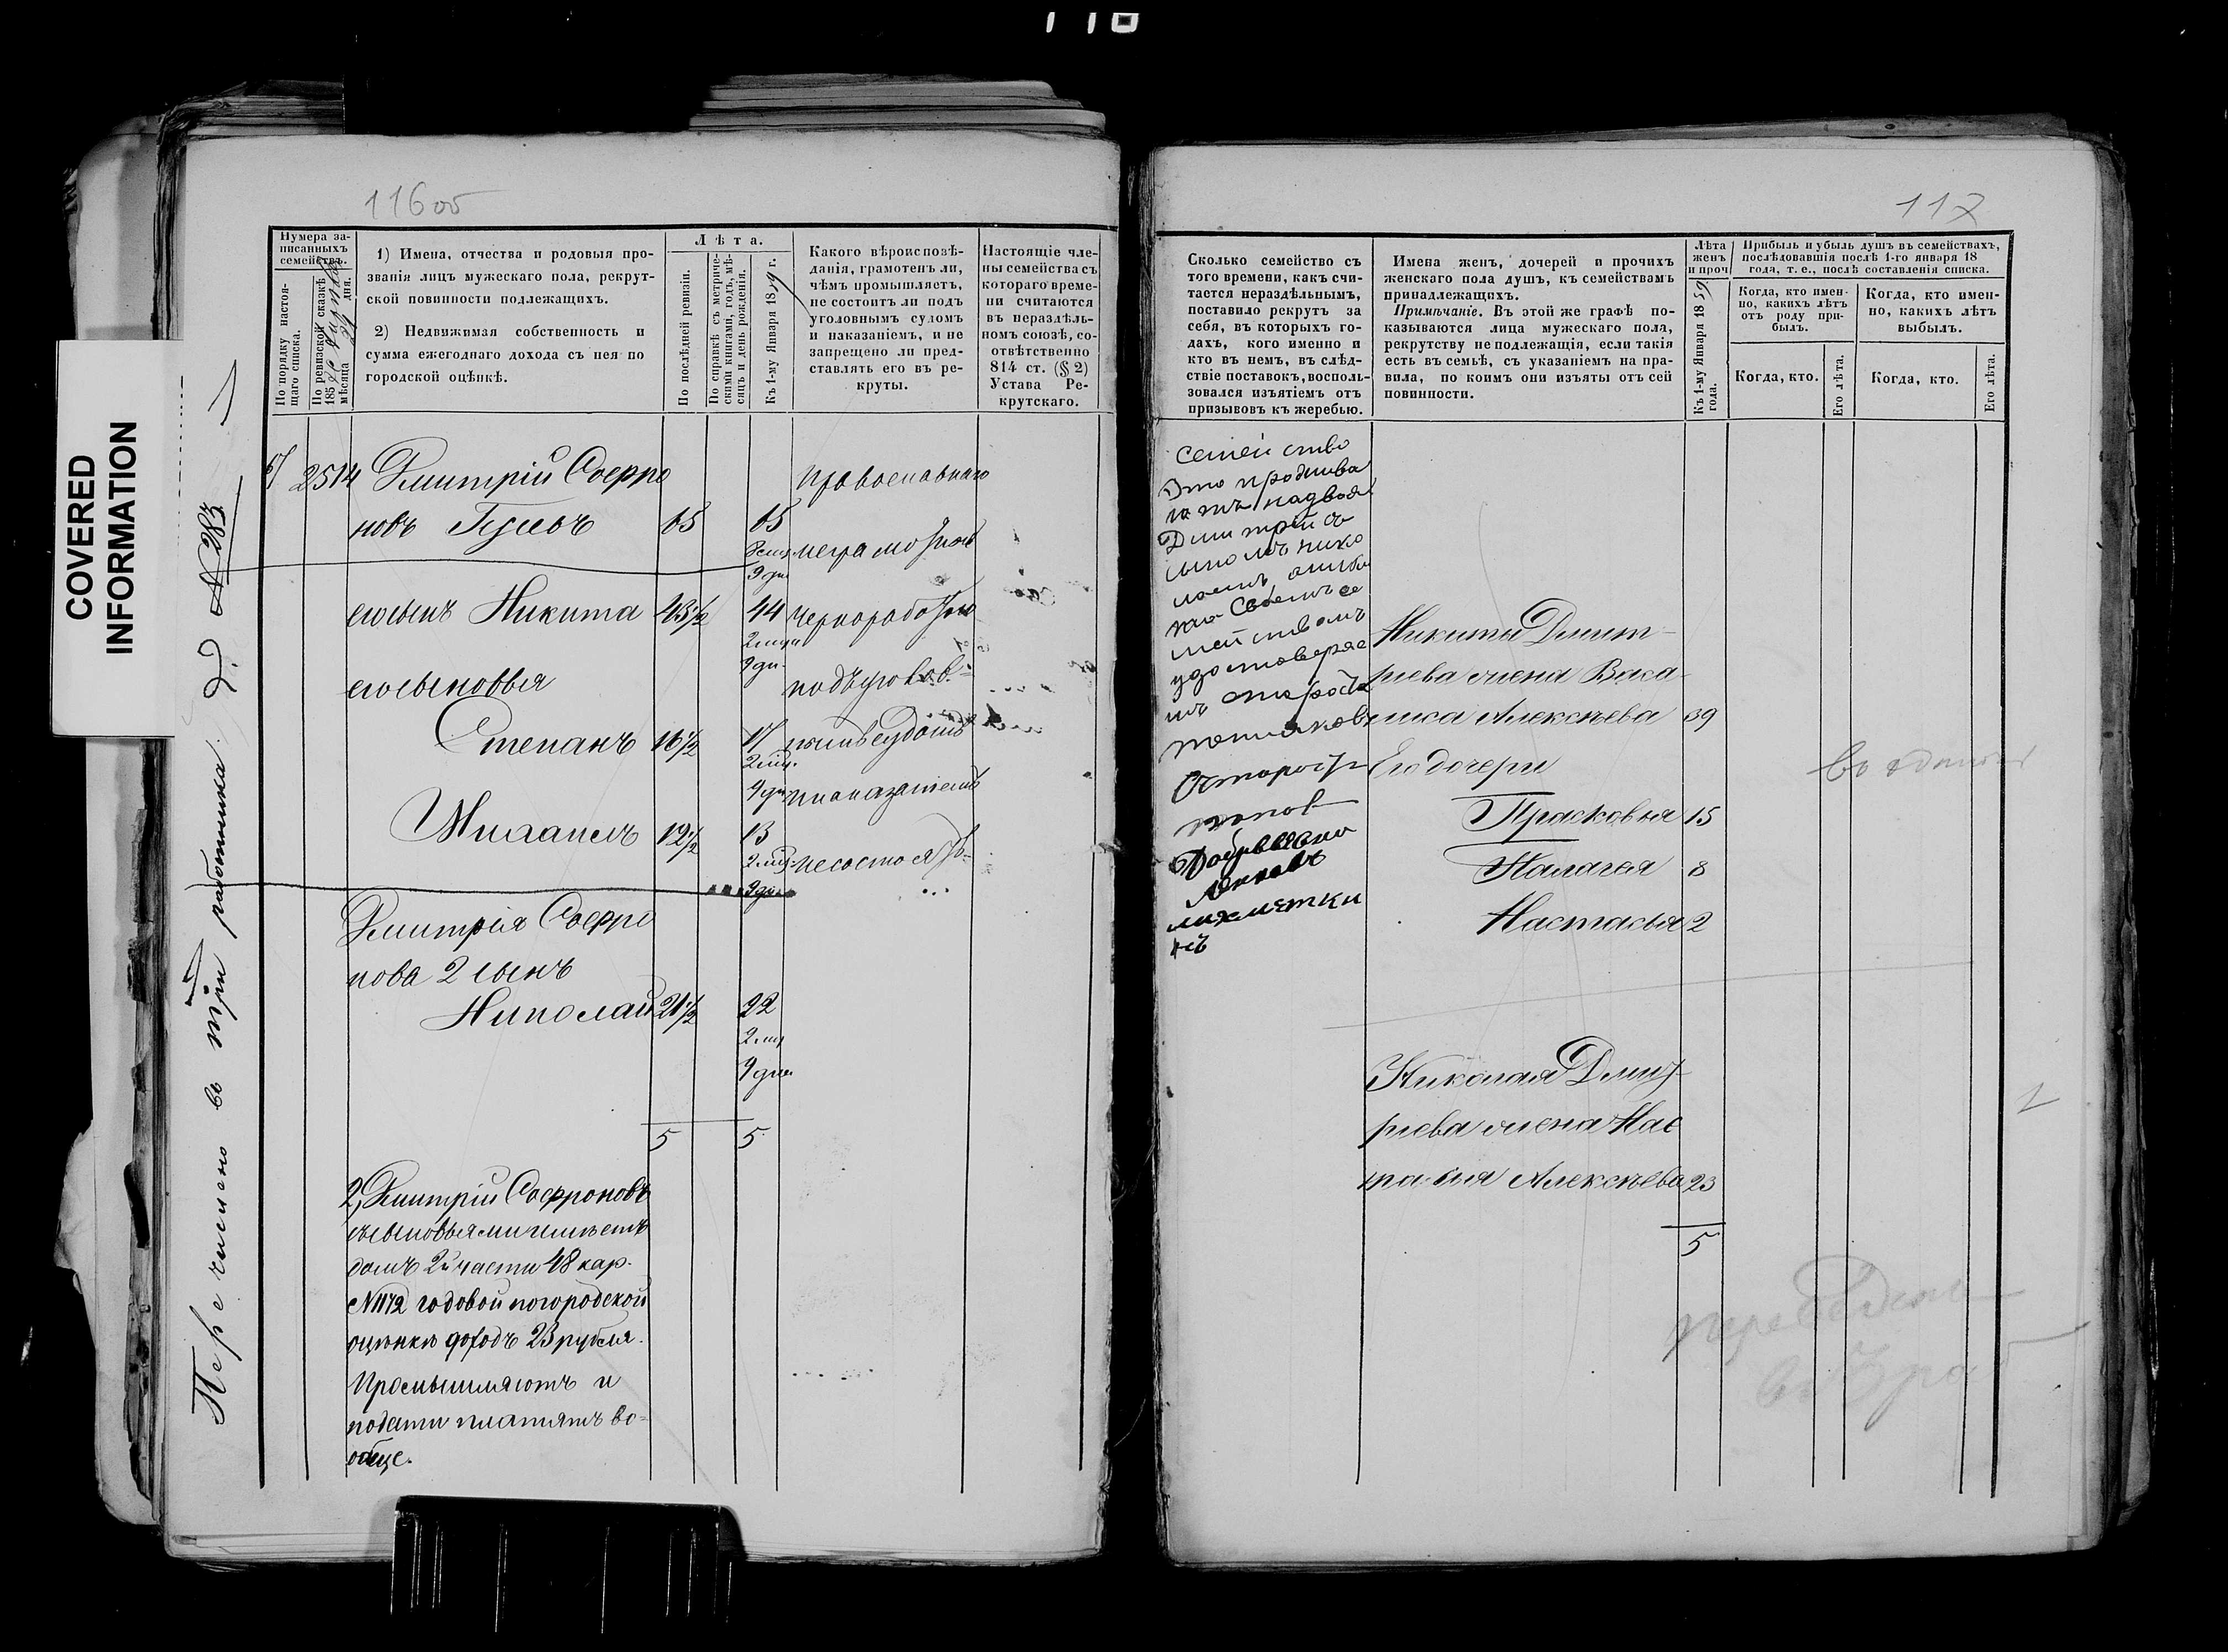 116об
Нумера за-
писанныхъ
семействъ.
По порядку настоя-
щаго списка.
По ревизской сказкѣ
185
мѣсяца дня.
1) Имена, отчества и родовыя про-
званія лицъ мужескаго пола, рекрут-
ской повинности подлежащихъ.
2) Недвижимая собственность и
сумма ежегоднаго дохода съ нея по
городской оцѣнкѣ.
Лѣта.
По послѣдней ревизіи.
По справкѣ съ метриче-
скими книгами, годъ, мѣ-
сяцъ и день рожденія.
Къ 1-му Января 1859 г.
Какого вѣроисповѣ-
данія, грамотенъ ли,
чѣмъ промышляетъ,
не состоитъ ли подъ
уголовнымъ судомъ
и наказаніемъ, и не
запрещено ли пред-
ставлять его въ ре-
круты.
Настоящіе чле-
ны семейства съ
котораго време-
ни считаются
въ нераздѣль-
номъ союзѣ, со-
отвѣтственно
814 ст. (§ 2)
Устава Ре-
крутскаго.
COVERED
INFORMATION
Перечислено въ три работника. № 283
2514 Дмитрій Софро
новъ 65 65
православнаго
неграмотные
9 дн
его сынъ Никита 43½ 44
2 мѣц
9 дн.
чернорабочіе
его сыновья
подъ уголов.
Степанъ 16½ 17
2 мц.
9 дн
нымъ судомъ
и наказаніемъ
Михаилъ 12½ 13
2 мц.
9 дн
не состоятъ
Дмитрія Софро
нова 2 сынъ
Николай 21½ 22
2 мц
9 дне.
5 5
2, Дмитрій Софроновъ
съ сыновьями имѣетъ
домъ 2й части 48 кар.
№ 1172 годовой погородской
оцѣнкѣ доходъ 23 рубля.
Промышляютъ и
подати платятъ во-
обще.
117
Сколько семейство съ
того времени, какъ счи-
тается нераздѣльнымъ,
поставило рекрутъ за
себя, въ которыхъ го-
дахъ, кого именно и
кто въ немъ, въ слѣд-
ствіе поставокъ, восполь-
зовался изъятіемъ отъ
призывовъ къ жеребью.
Имена женъ, дочерей и прочихъ
женскаго пола душъ, къ семействамъ
принадлежащихъ.
Примѣчаніе. Въ этой же графѣ по-
казываются лица мужескаго пола,
рекрутству не подлежащія, если такія
есть въ семьѣ, съ указаніемъ на пра-
вила, по коимъ они изъяты отъ сей
повинности.
Лѣта
женъ
и проч
Къ 1-му Января 1859
года.
Прибыль и убыль душъ въ семействахъ,
послѣдовавшія послѣ 1-го января 18
года, т. е., послѣ составленія списка.
Когда, кто имен-
но, какихъ лѣтъ
отъ роду при-
былъ.
Когда, кто имен-
но, какихъ лѣтъ
выбылъ.
Когда, кто.
Его лѣта.
Когда, кто.
Его лѣта.
Семей ство
Это прожива
Дми трей съ
сыномъ нико
своемъ се
мей ствомъ
удостоверяе
Никиты Дмит-
ріева жена Васа-
лиса Алексѣева 39
Его дочери
Прасковья 15
Палагея 8
Настасья 2
Николая Дмит-
ріева жена Нас
тасья Алексѣева 23
5
переведенъ
в 3 раб